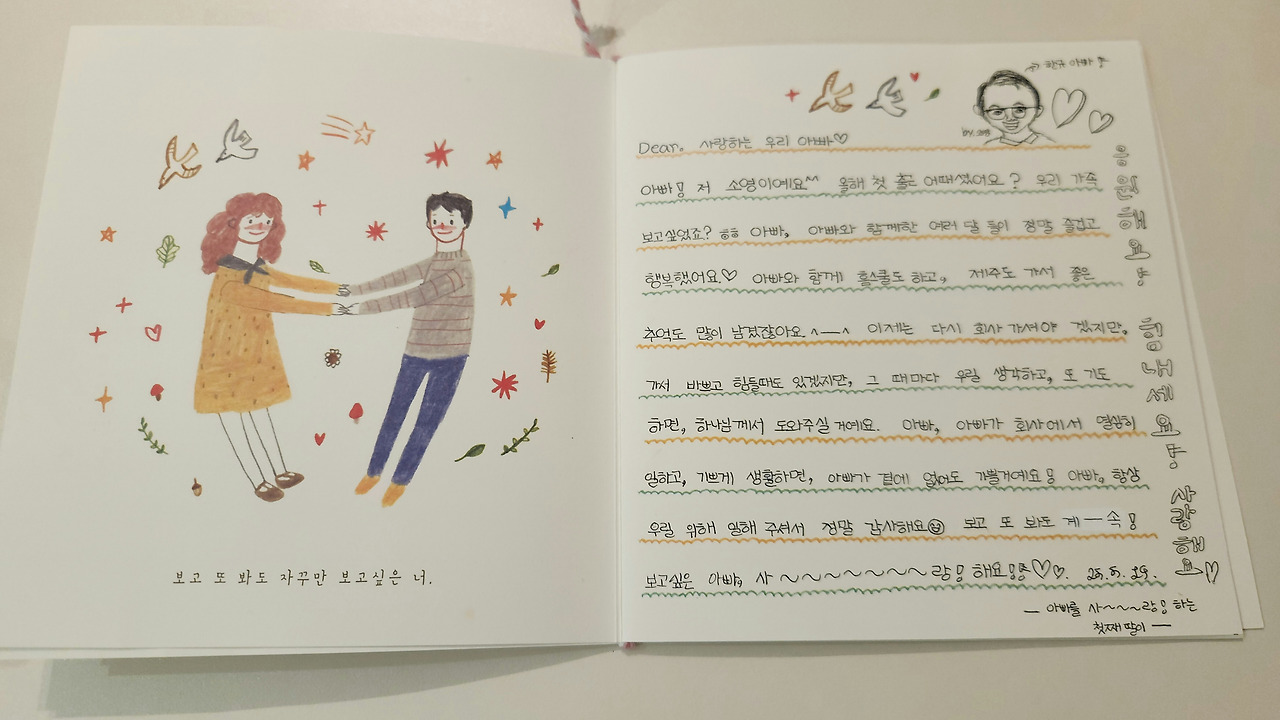 보고 또 봐도 자꾸만 보고싶은 너.
아빠
Dear. 사랑하는 우리 아빠♡
아빠! 저 소영이예요^^ 올해 첫 출근 어때셨어요? 우리 가족
보고싶었죠? ㅎㅎ 아빠, 아빠와 함께한 여러 달 들이 정말 즐겁고
행복했어요♡ 아빠와 함께 홈스쿨도 하고, 제주도 가서 좋은
추억도 많이 남겼잖아요 ^-^ 이제는 다시 회사 가셔야 겠지만,
가서 바쁘고 힘들때도 있겠지만, 그 때마다 우릴 생각하고, 또 기도
하면, 하나님께서 도와주실 거예요. 아빠, 아빠가 회사에서 열심히
일하고, 기쁘게 생활하면, 아빠가 곁에 없어도 기쁠거예요! 아빠, 항상
우릴 위해 일해 주셔서 정말 감사해요☺ 보고 또 봐도 계-속!
보고싶은 아빠, 사~~~~~~~~랑! 해요!!♡♡. 25. 5. 29.
- 아빠를 사~~~랑! 하는
첫째 딸이 -
응원해요
힘내세요
사랑해요♡